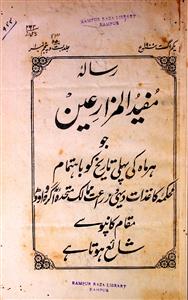 RAMPUR RAZA LIBRARY
RAMPUR
رسالہ
مفید المزارعین
جو
ہر ماہ کی پہلی تاریخ کو باہتمام
محکمہ کاغذات دیہی و زراعت ممالک متحدہ آگرہ و اودھ
مقام کانپور سے
شائع ہوتا ہے
RAMPUR RAZA LIBRARY
RAMPUR